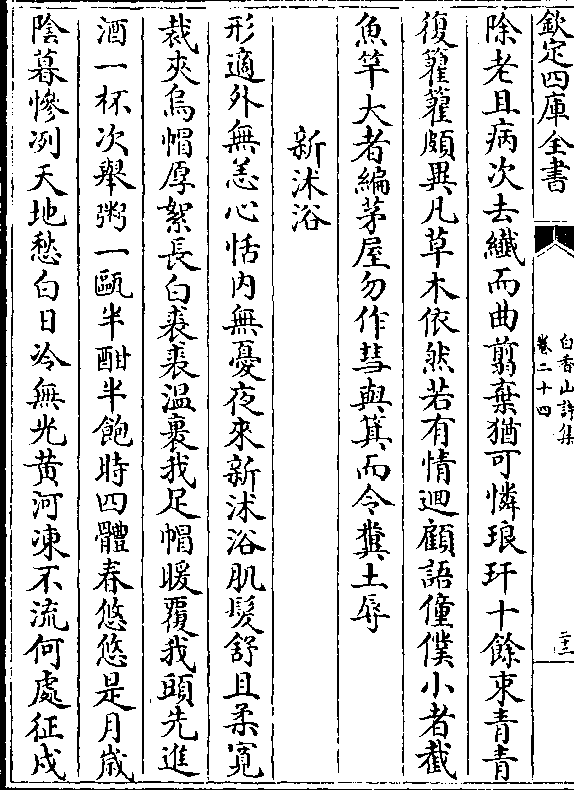 欽定四庫全書
白香山詩集
卷二十四
二十三
除老且病次去纖而曲翦棄猶可憐琅玕十餘束青青
復籊籊頗異凡草木依然若有情迴顧語僮僕小者截
魚竿大者編茅屋勿作彗與箕而令糞土辱
新沐浴
形適外無恙心恬內無憂夜來新沐浴肌髮舒且柔寛
裁夾烏帽厚絮長白裘裘溫裹我足帽暖覆我頭先進
酒一杯次舉粥一甌半酣半飽時四體春悠悠是月歳
陰暮慘冽天地愁白日冷無光黄河凍不流何處征戍